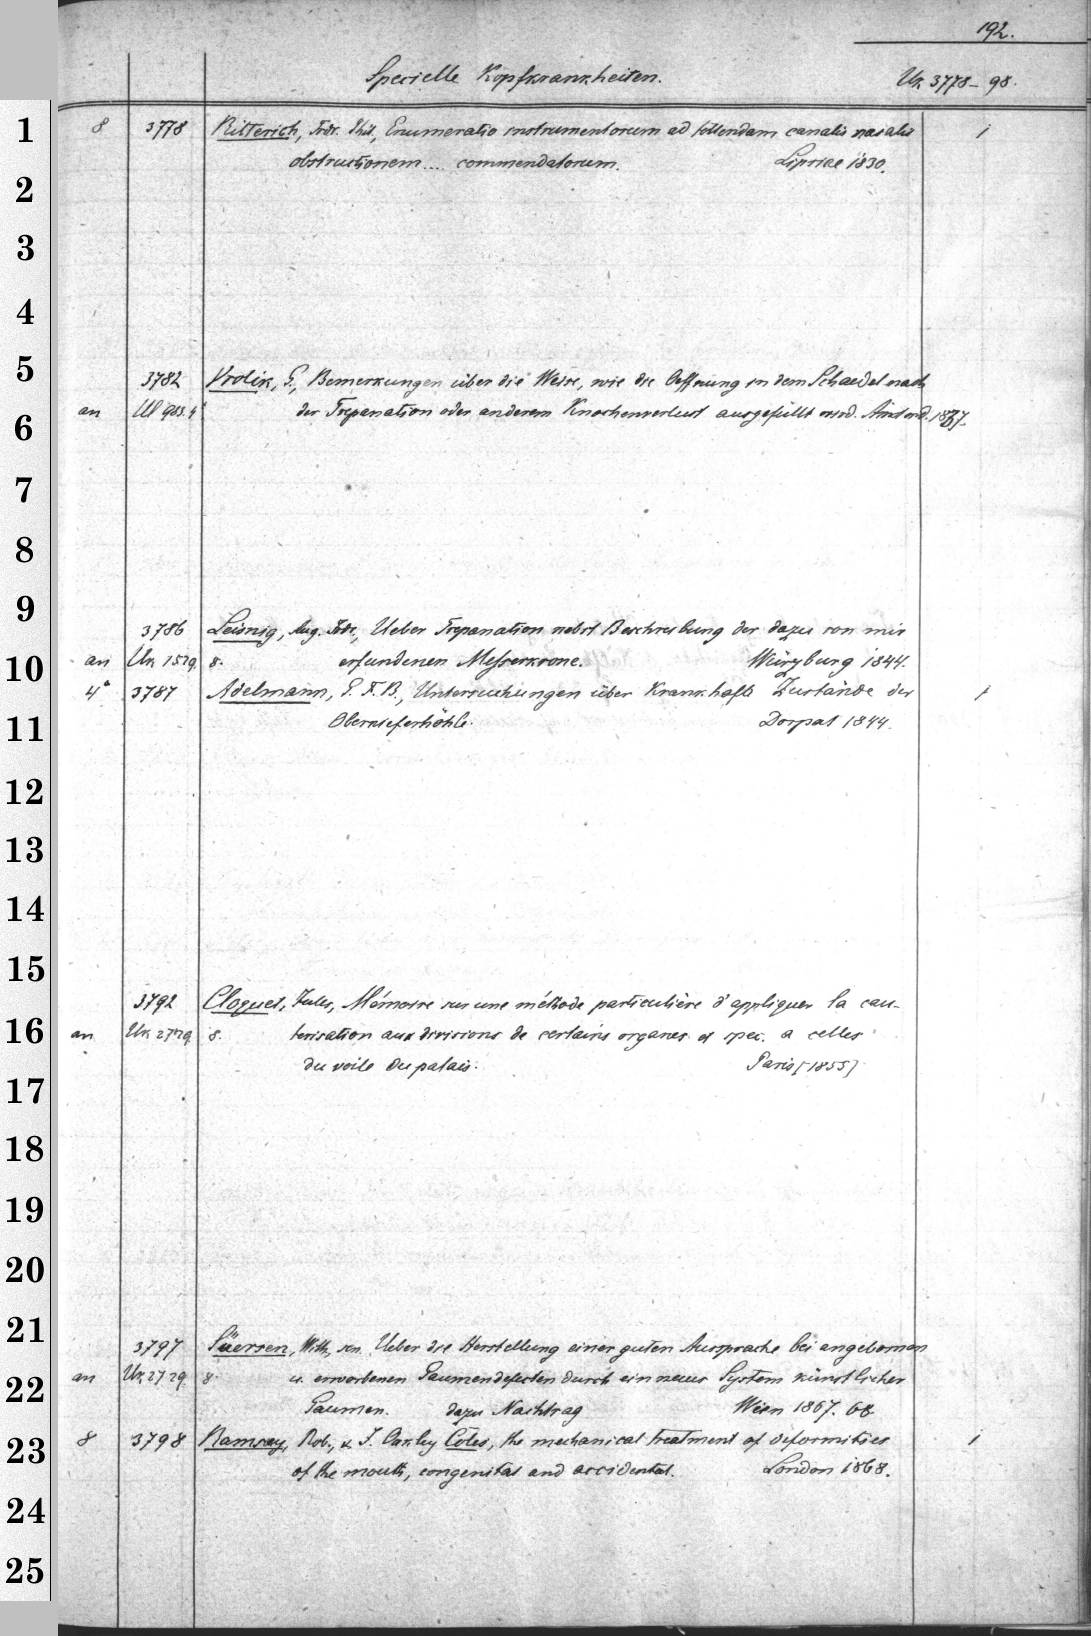 192.
Specielle Kopfkrankheiten. Uk 3778-98.
1 8 3778 Ritterich, Frdr. Phil., Enumeratio instrumentorum ad tollendam canalis nasalis 1
obstructionem .... commendatorum. Lipsiae 1830.
2
3
4
5 3782 Vrolik, G., Bemerkungen über die Weise, wie die Oeffnung in dem Schaedel nach
6 an 4° der Trepanation oder anderem Knochenverlust ausgefüllt wird. Amsterd. 1837.
7
8
9 3786 Leisnig, Aug. Frdr., Ueber Trepanation nebst Beschreibung der dazu von mir
10 an Uk 1579 8. erfundenen Messerkrone. Würzburg 1844.
4° 3787 Adelmann, G. F. B., Untersuchungen über krankhafte Zustände der 1
11 Oberkieferhöhle. Dorpat 1844.
12
13
14
15
3792 Cloquet, Jules, Mémoire sur une méthode particulière d'appliquer la cau-
16 an Uk 2729 8. terisation aux divisions de certains organes et spec. a celles
du voile du palais. Paris [1855]
17
18
19
20
21 3797 Süersen, Wilh., sen. Ueber die Herstellung einer guten Aussprache bei angebornen
22 an Uk 2729 8. u. erworbenen Gaumendefecten durch ein neues System künstlicher
Gaumen. dazu Nachtrag Wien 1867. 68
23 8 3798 Ramsay, Rob., & J. Oakley Coles, the mechanical treatment of deformities 1
of the mouth, congenital and accidental. London 1868.
24
25